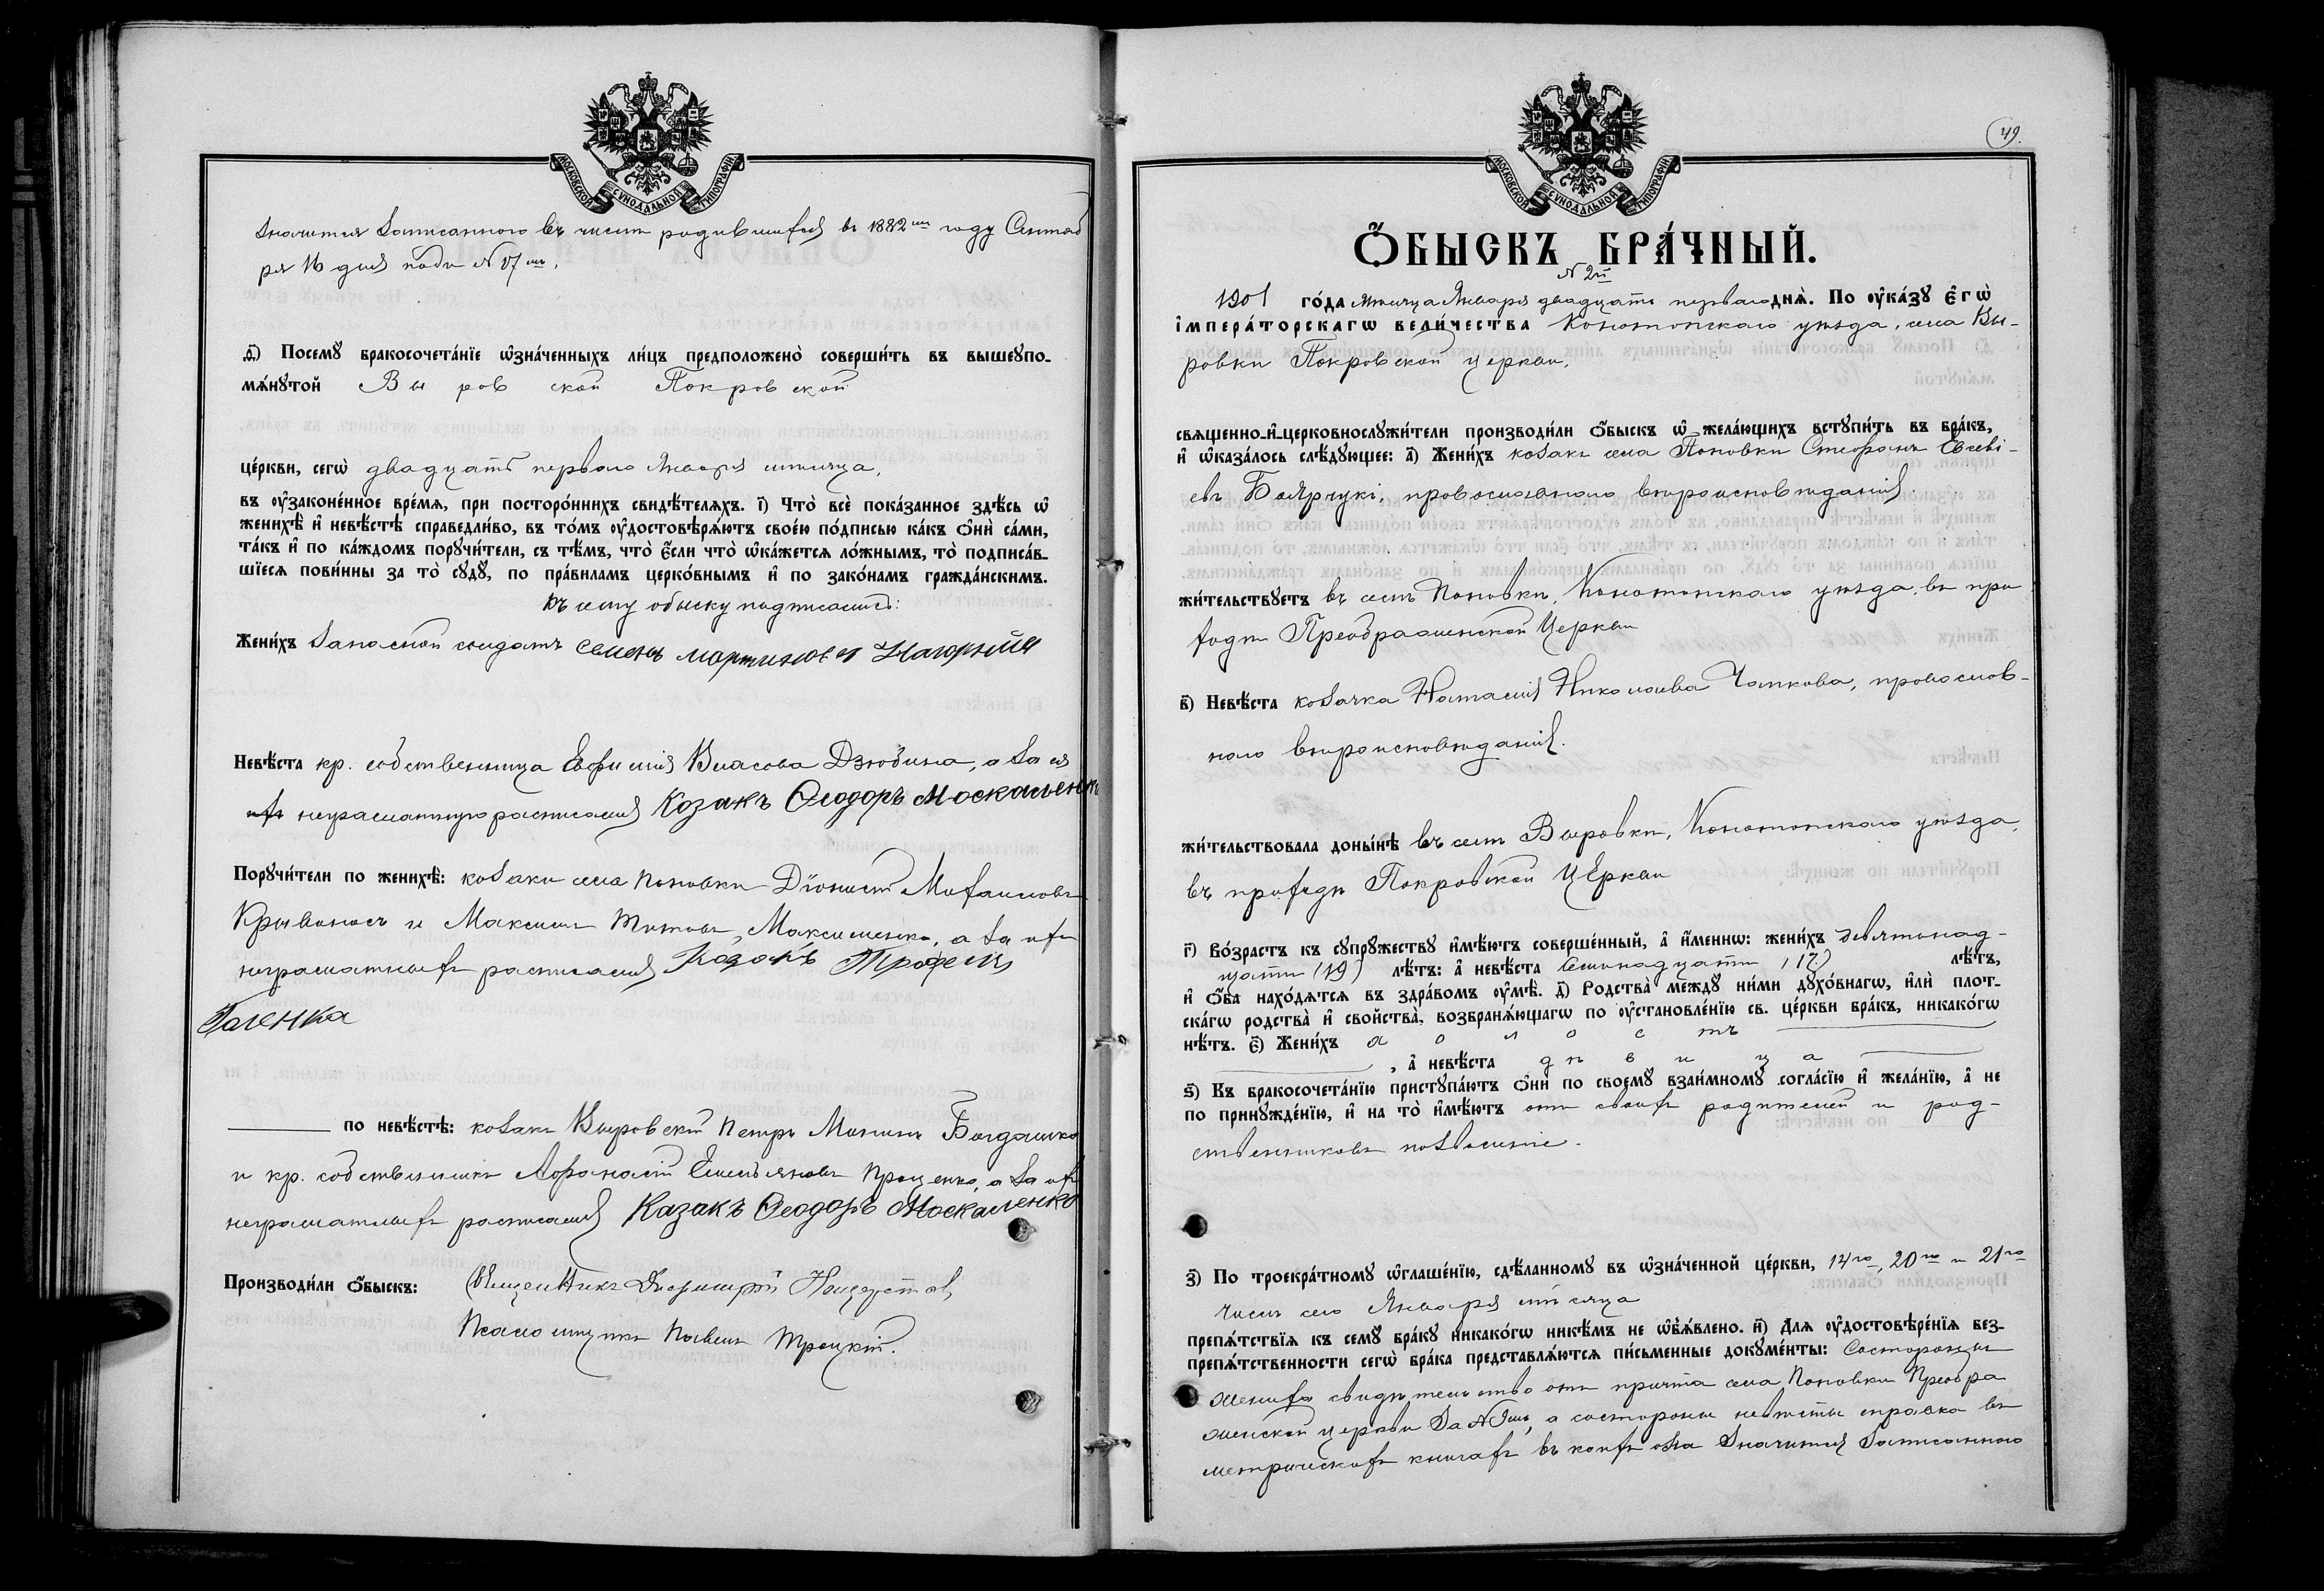 МОСКОВСКОЙ СѴНОДАЛЬНОЙ ТИПОГРАФІИ
значится записанною въ числѣ родившихся въ 1882мъ году Сентяб
ря 16 дня подъ №
д҃) Посемꙋ бракосочета́нїе ѡ҆зна́ченныхъ ли́цъ предположено̀ соверши́ть въ вышеꙋпо-
мѧ́нꙋтой Выровской Покровской
це́ркви, сегѡ̀ двадцать перваго Января мѣсяца,
въ ᲂу҆законе́нное вре́мѧ, при посторо́ннихъ свидѣ́телѧхъ. і҃) Что̀ всѐ показанное здѣ́сь ѡ҆
женихѣ̀ и҆ невѣ́стѣ справедли́во, въ то́мъ ᲂу҆достовѣрѧ́ютъ свое́ю по́дписью ка́къ ѻ҆нѝ са́ми,
та́къ и҆ по ка́ждомъ порꙋчи́тели, съ тѣ́мъ, что̀ є҆́сли что̀ ѡ҆ка́жетсѧ ло́жнымъ, то̀ подписа́в-
шїесѧ пови́нны за то̀ сꙋдꙋ̀, по пра́виламъ церко́внымъ и҆ по зако́намъ гражда́нскимъ.
Къ сему обыску подписались:
Жени́хъ запасной солдатъ Семенъ Мартиновъ Нагорный
Невѣ́ста кр. собственница Евфимія Власова Дзюбина, а за ея
неграмотную росписался Козакъ Ѳеодоръ Москаленк
Порꙋчи́тели по женихѣ̀: козаки села Поповки Діонисій Михаиловъ
Крывоносъ и Максимъ Титовъ Максименко, а за ихъ
неграмотныхъ росписался Козакъ Трофемъ
Галенка
по невѣ́стѣ: козакъ Выровскій Петръ Мининъ Богдашко
и кр. собственникъ Аѳанасій Емельяновъ Проценко, а за ихъ
неграмотныхъ росписался Казакъ Ѳеодоръ Москаленко
Производи́ли ѻ҆́быскъ: Священникъ Димитрій
Псаломщикъ Павелъ Троцкій.
49.
МОСКОВСКОЙ СѴНОДАЛЬНОЙ ТИПОГРАФІИ
Ѻ҆́БЫСКЪ БРА́ЧНЫЙ.
№ 2й
1901 го́да мѣсяца Января двадцать перваго днѧ̀. По ᲂу҆ка́зꙋ є҆гѡ̀
і҆мпера́торскагѡ вели́чества Конотопскаго уѣзда, села Вы-
ровки Покровской церкви,
свѧщенно-и҆-церковнослꙋжи́тели производи́ли ѻ҆́быскъ ѡ҆ жела́ющихъ встꙋпи́ть въ бра́къ,
и҆ ѡ҆каза́лось слѣ́дꙋющее: а҃) Жени́хъ козакъ села Поповки Стефанъ Евсеві-
евъ Боярчукъ, православнаго вѣроисповѣданія.
жи́тельствꙋетъ въ селѣ Поповки, Конотопскаго уѣзда, въ при
ходѣ Преображенской Церкви
в҃) Невѣ́ста козачка Наталія Николаева Чапкова, православ-
наго вѣроисповѣданія.
жи́тельствовала доны́нѣ въ селѣ Выровки, Конотопскаго уѣзда,
въ приходѣ Покровской Церкви
г҃) Во́зрастъ къ сꙋпрꙋ́жествꙋ и҆мѣ́ютъ соверше́нный, а҆ и҆́меннѡ: жени́хъ девятнад-
цати (19) лѣ́тъ: а҆ невѣ́ста Семнадцати (17) лѣ́тъ,
и҆ ѻ҆́ба нахо́дѧтсѧ въ здра́вомъ ᲂу҆мѣ̀. д҃) Родства̀ междꙋ̀ ни́ми дꙋхо́внагѡ, и҆лѝ плот-
ска́гѡ родства̀ и҆ свойства̀, возбранѧ́ющагѡ по ᲂу҆становле́нїю св. це́ркви бра́къ, никако́гѡ
нѣ́тъ. є҃) Жени́хъ холостъ
, а҆ невѣ́ста дѣвица
ѕ҃) Къ бракосочета́нїю пристꙋпа́ютъ ѻ҆нѝ по своемꙋ̀ взаи́мномꙋ согла́сїю и҆ жела́нїю, а҆ не
по принꙋжде́нїю, и҆ на то̀ и҆мѣ́ютъ отъ своихъ родителей и род-
ственниковъ позволеніе.
з҃) По троекра́тномꙋ ѡ҆глаше́нїю, сдѣ́ланномꙋ въ ѡ҆зна́ченной це́ркви, 14го, 20го и 21го
числъ сего Января мѣсяца
препѧ́тствїѧ къ семꙋ̀ бра́кꙋ никако́гѡ никѣ́мъ не ѡ҆б̾ѧ́влено. и҃) Длѧ ᲂу҆достовѣре́нїѧ без-
препѧ́тственности сегѡ̀ бра́ка представлѧ́ютсѧ пи́сьменные докꙋме́нты: Состороны
жениха свидѣтельство отъ причта села Поповки Преобра
женской церкви за №, а состороны невѣсты справка въ
метрическихъ книгахъ въ коихъ она значится записанною